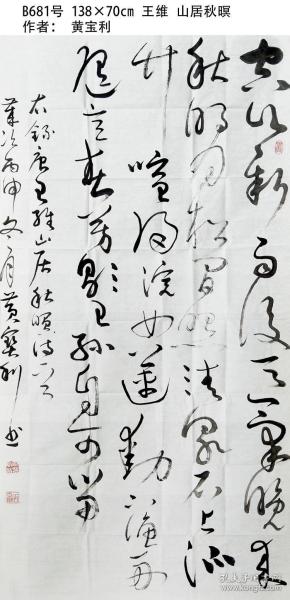 B681号 138×70cm 王维 山居秋暝
作者： 黄宝利
空山新雨後天气晚来
秋明月松间照清泉石上流
竹喧归浣女莲动下渔舟
随意春芳歇王孙自可留
右录唐王维山居秋暝诗一首
岁次丙申冬月黄宝利书
孔夫子旧书网
www.kongfz.com